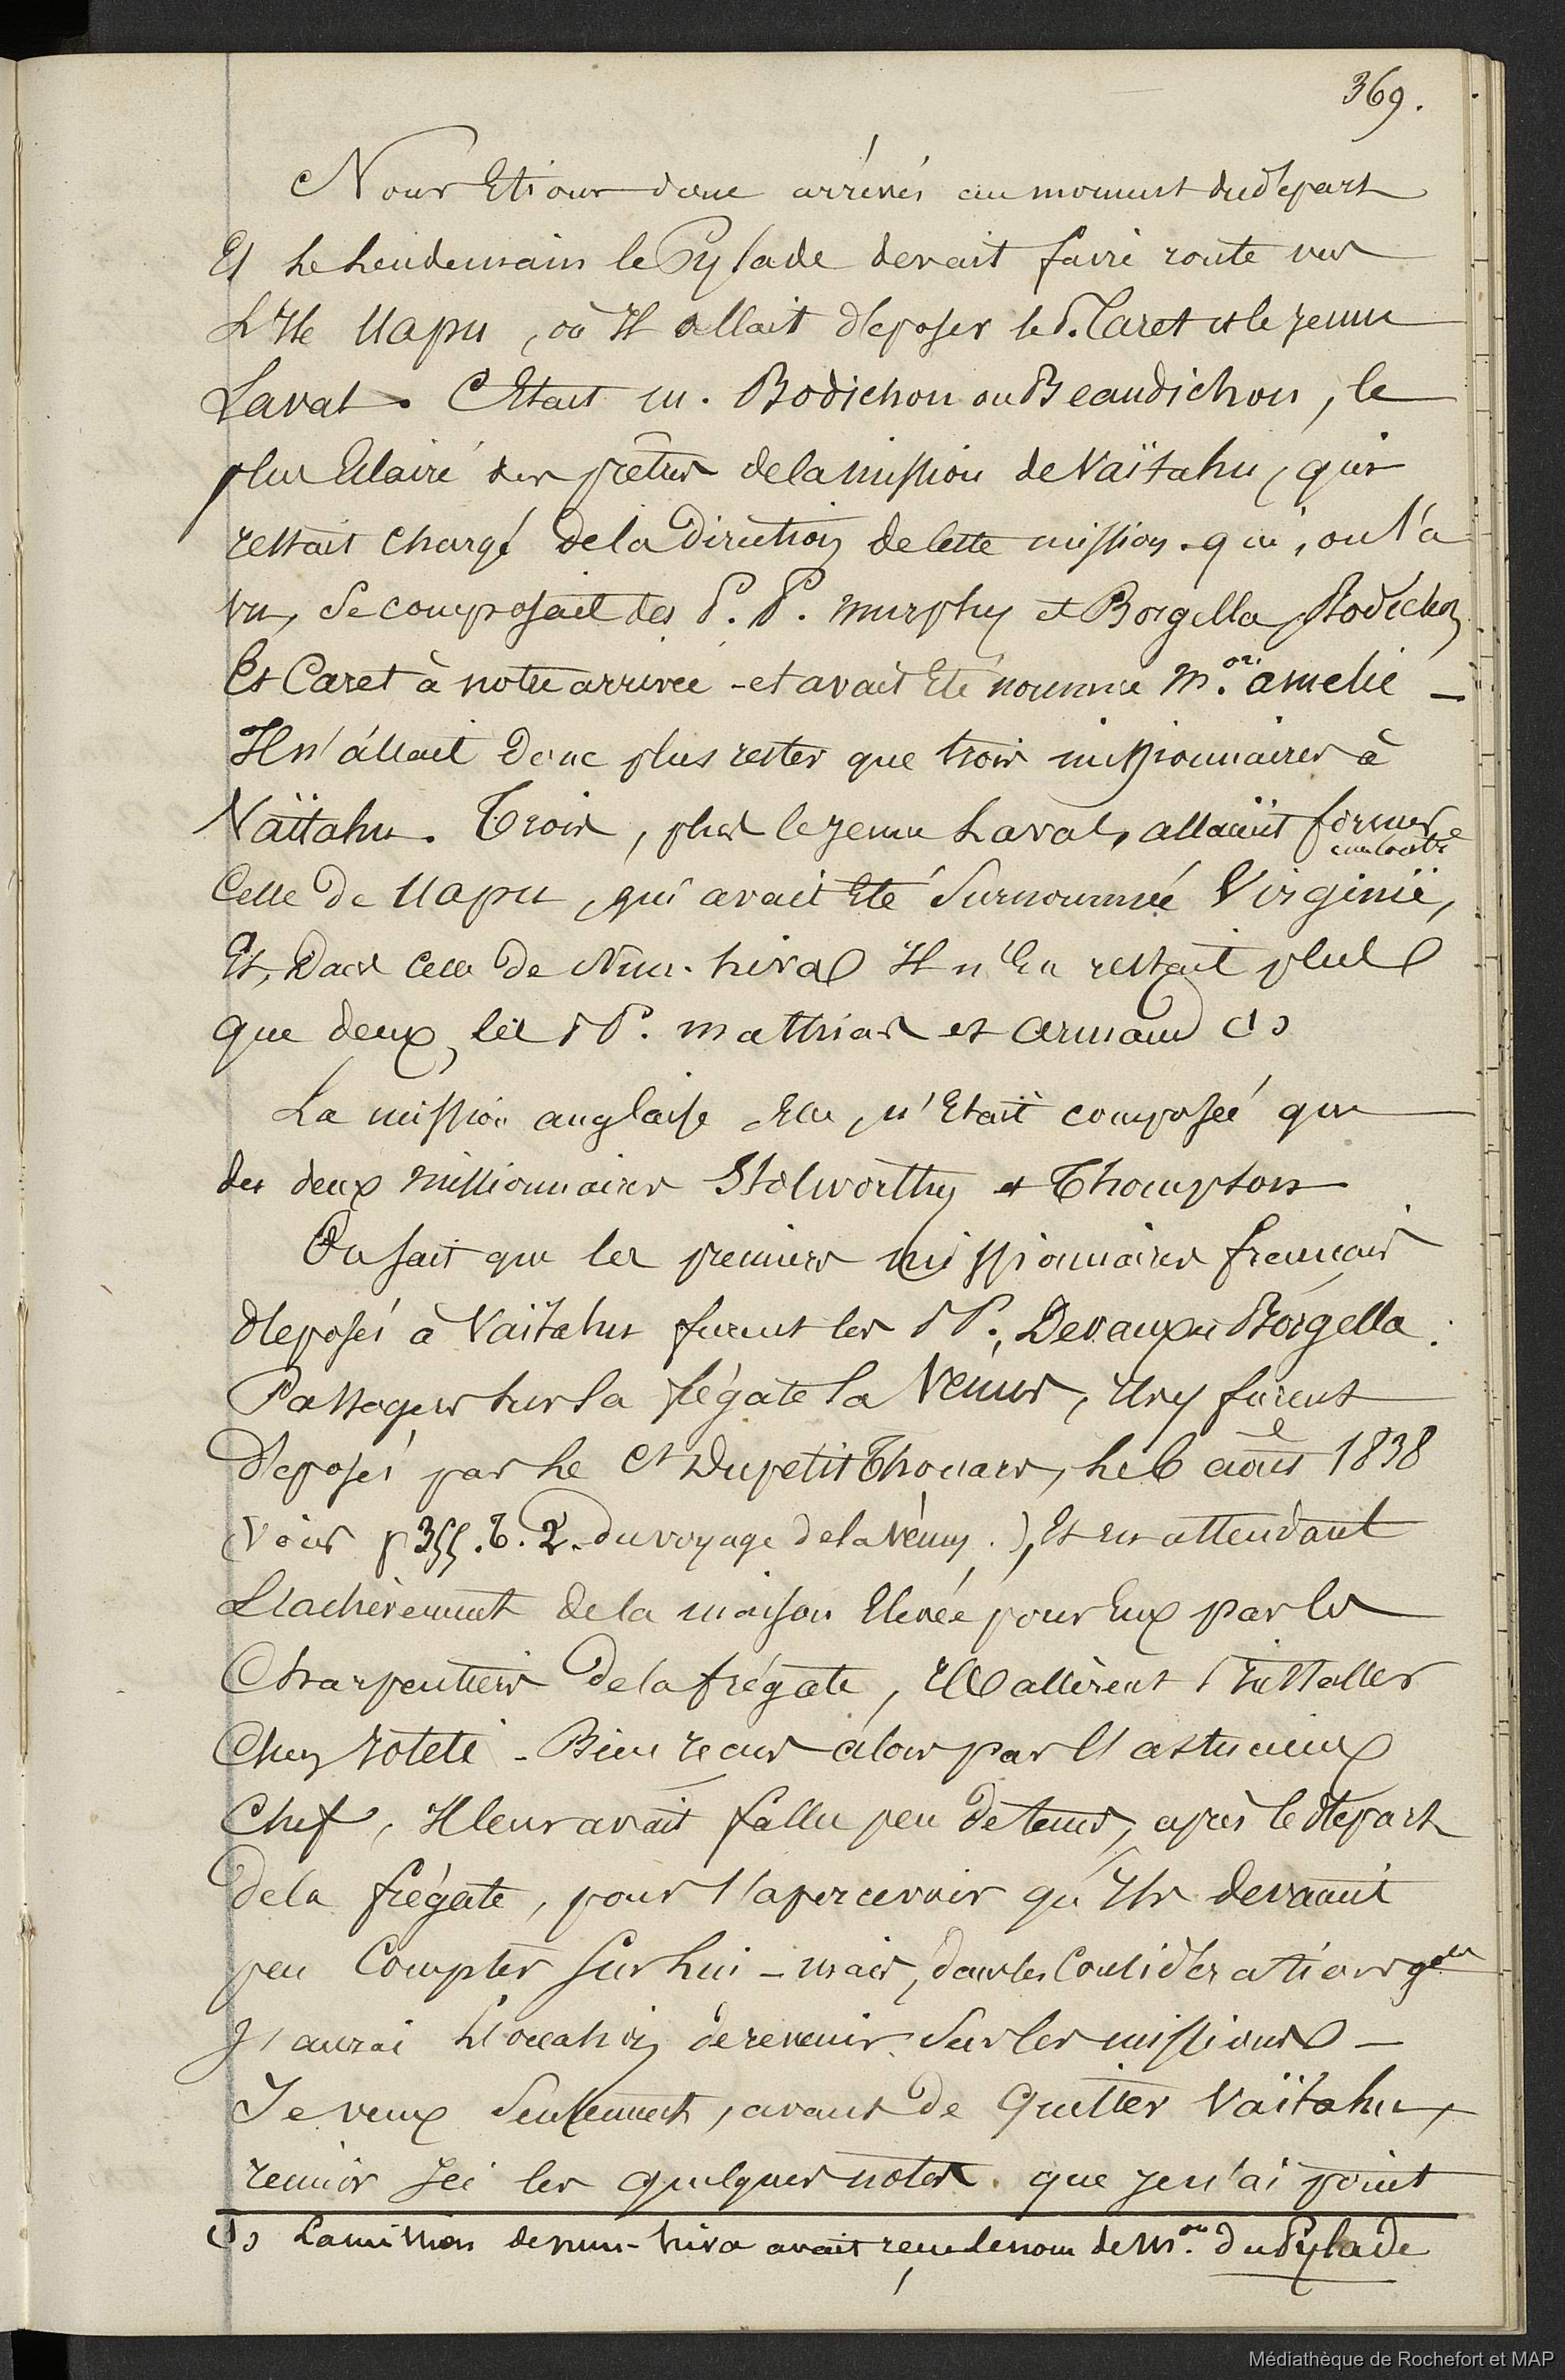 369.
Nous Etions donc arrivés au moment du départ
Et le lendemain le Pylade devait faire route vers
L'Ile Uapu, où Il allait déposer le P. Caret et le jeune
Laval. C'Etait m. Bodichon ou Beaudichon, le
plus Eclairé des prêtres de la mission de Vaïtahu, qui
restait chargé de la Direction de cette mission - qui, on l'a
vu, se composait des P. P. murphy et Borgella, Bodichon
Et Caret à notre arrivée - et avait Eté nommée m.on amelie -
Il n'allait donc plus rester que trois missionnaires à
Vaïtahu. Trois, plus le jeune Laval, allaient former
Celle de Uapu, qui avait Eté surnommée Virginie,
Et, Dans celle de Nuu-hiva Il n'En restait plus
que deux, les PP. matthias et armand (1)
La mission anglaise Elle, n'Etait composée que
des deux missionnaires Stolworthy et Thompson
On sait que les premiers missionnaires français
déposés à Vaïtahu furent les PP. Devaux et Borgella.
Passagers sur la frégate la Venus, Ils y furent
déposés par le Ct Dupetit Thouars, le 6 août 1838
(Voir p 355. T. 2. du voyage de la Vénus.), Et en attendant
L'achèvement de la maison Elevée pour Eux par les
Charpentiers de la frégate, Ils allèrent s'installer
Chez Yotété - Bien reçus alors par l'astucieux
Chef, Il leur avait fallu peu de tems, après le départ
de la frégate, pour s'apercevoir qu'Ils devaient
peu Compter sur lui - mais, dans les Considérations gales
J'aurai L'occasion de revenir sur les missions -
Je veux seulement, avant de Quitter Vaïtahu,
reunir Ici les quelques notes que je n'ai point
(1) La mission de nuu-hiva avait reçu le nom de m.on du Pylade
Médiathèque de Rochefort et MAP